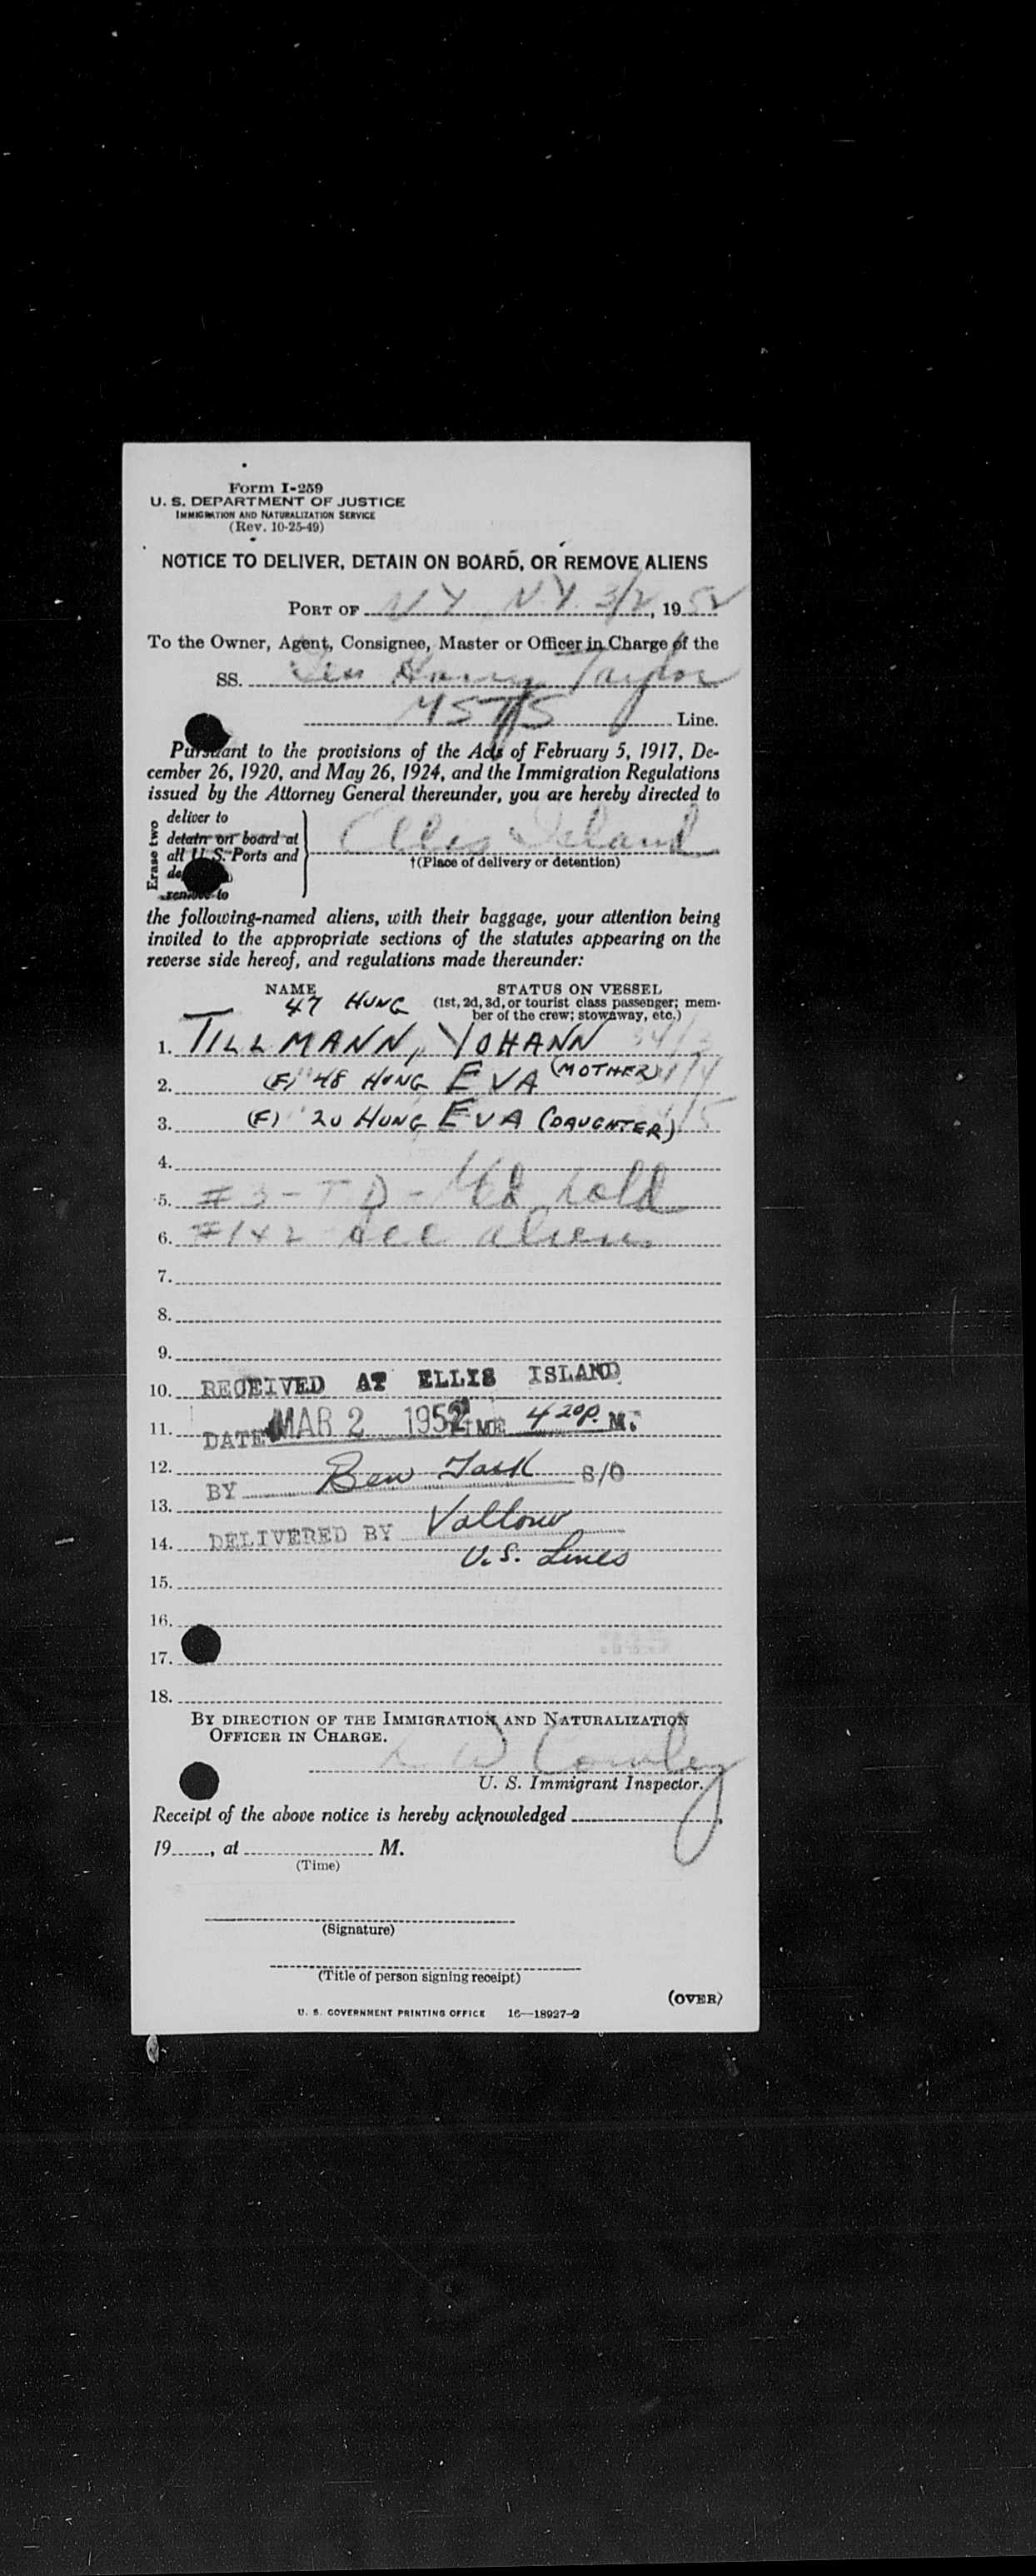 Form I-259
U. S. DEPARTMENT OF JUSTICE
IMMIGRATION AND NATURALIZATION SERVICE
(Rev. 10-25-49)
NOTICE TO DELIVER, DETAIN ON BOARD, OR REMOVE ALIENS
PORT OF NY NY 3/2, 1952
To the Owner, Agent, Consignee, Master or Officer in Charge of the
SS. Gen Harry Taylor
MSTS Line.
Pursuant to the provisions of the Acts of February 5, 1917, De-
cember 26, 1920, and May 26, 1924, and the Immigration Regulations
issued by the Attorney General thereunder, you are hereby directed to
Erase two
deliver to
detain on board at
all U. S. Ports and
remove to
Ellis Island
†(Place of delivery or detention)
the following-named aliens, with their baggage, your attention being
invited to the appropriate sections of the statutes appearing on the
reverse side hereof, and regulations made thereunder:
NAME STATUS ON VESSEL
(1st, 2d, 3d, or tourist class passenger; mem-
ber of the crew; stowaway, etc.)
47 HUNG
1. TILLMANN, YOHANN
2. (F) 48 HUNG EVA (MOTHER)
3. (F) 20 HUNG EVA (DAUGHTER)
4.
5. #3 - TD - Med hold
6. #1 & 2 acc alien
7.
8.
9.
10. RECEIVED AT ELLIS ISLAND
11. DATE MAR 2 1952 TIME 4 20 P. M.
12.
BY Ben Task S/O
13.
14. DELIVERED BY
U.S. Lines
15.
16.
17.
18.
BY DIRECTION OF THE IMMIGRATION AND NATURALIZATION
OFFICER IN CHARGE.
Cowley
U. S. Immigrant Inspector.
Receipt of the above notice is hereby acknowledged
19, at M.
(Time)
(Signature)
(Title of person signing receipt)
(OVER)
U. S. GOVERNMENT PRINTING OFFICE 16—18927-2